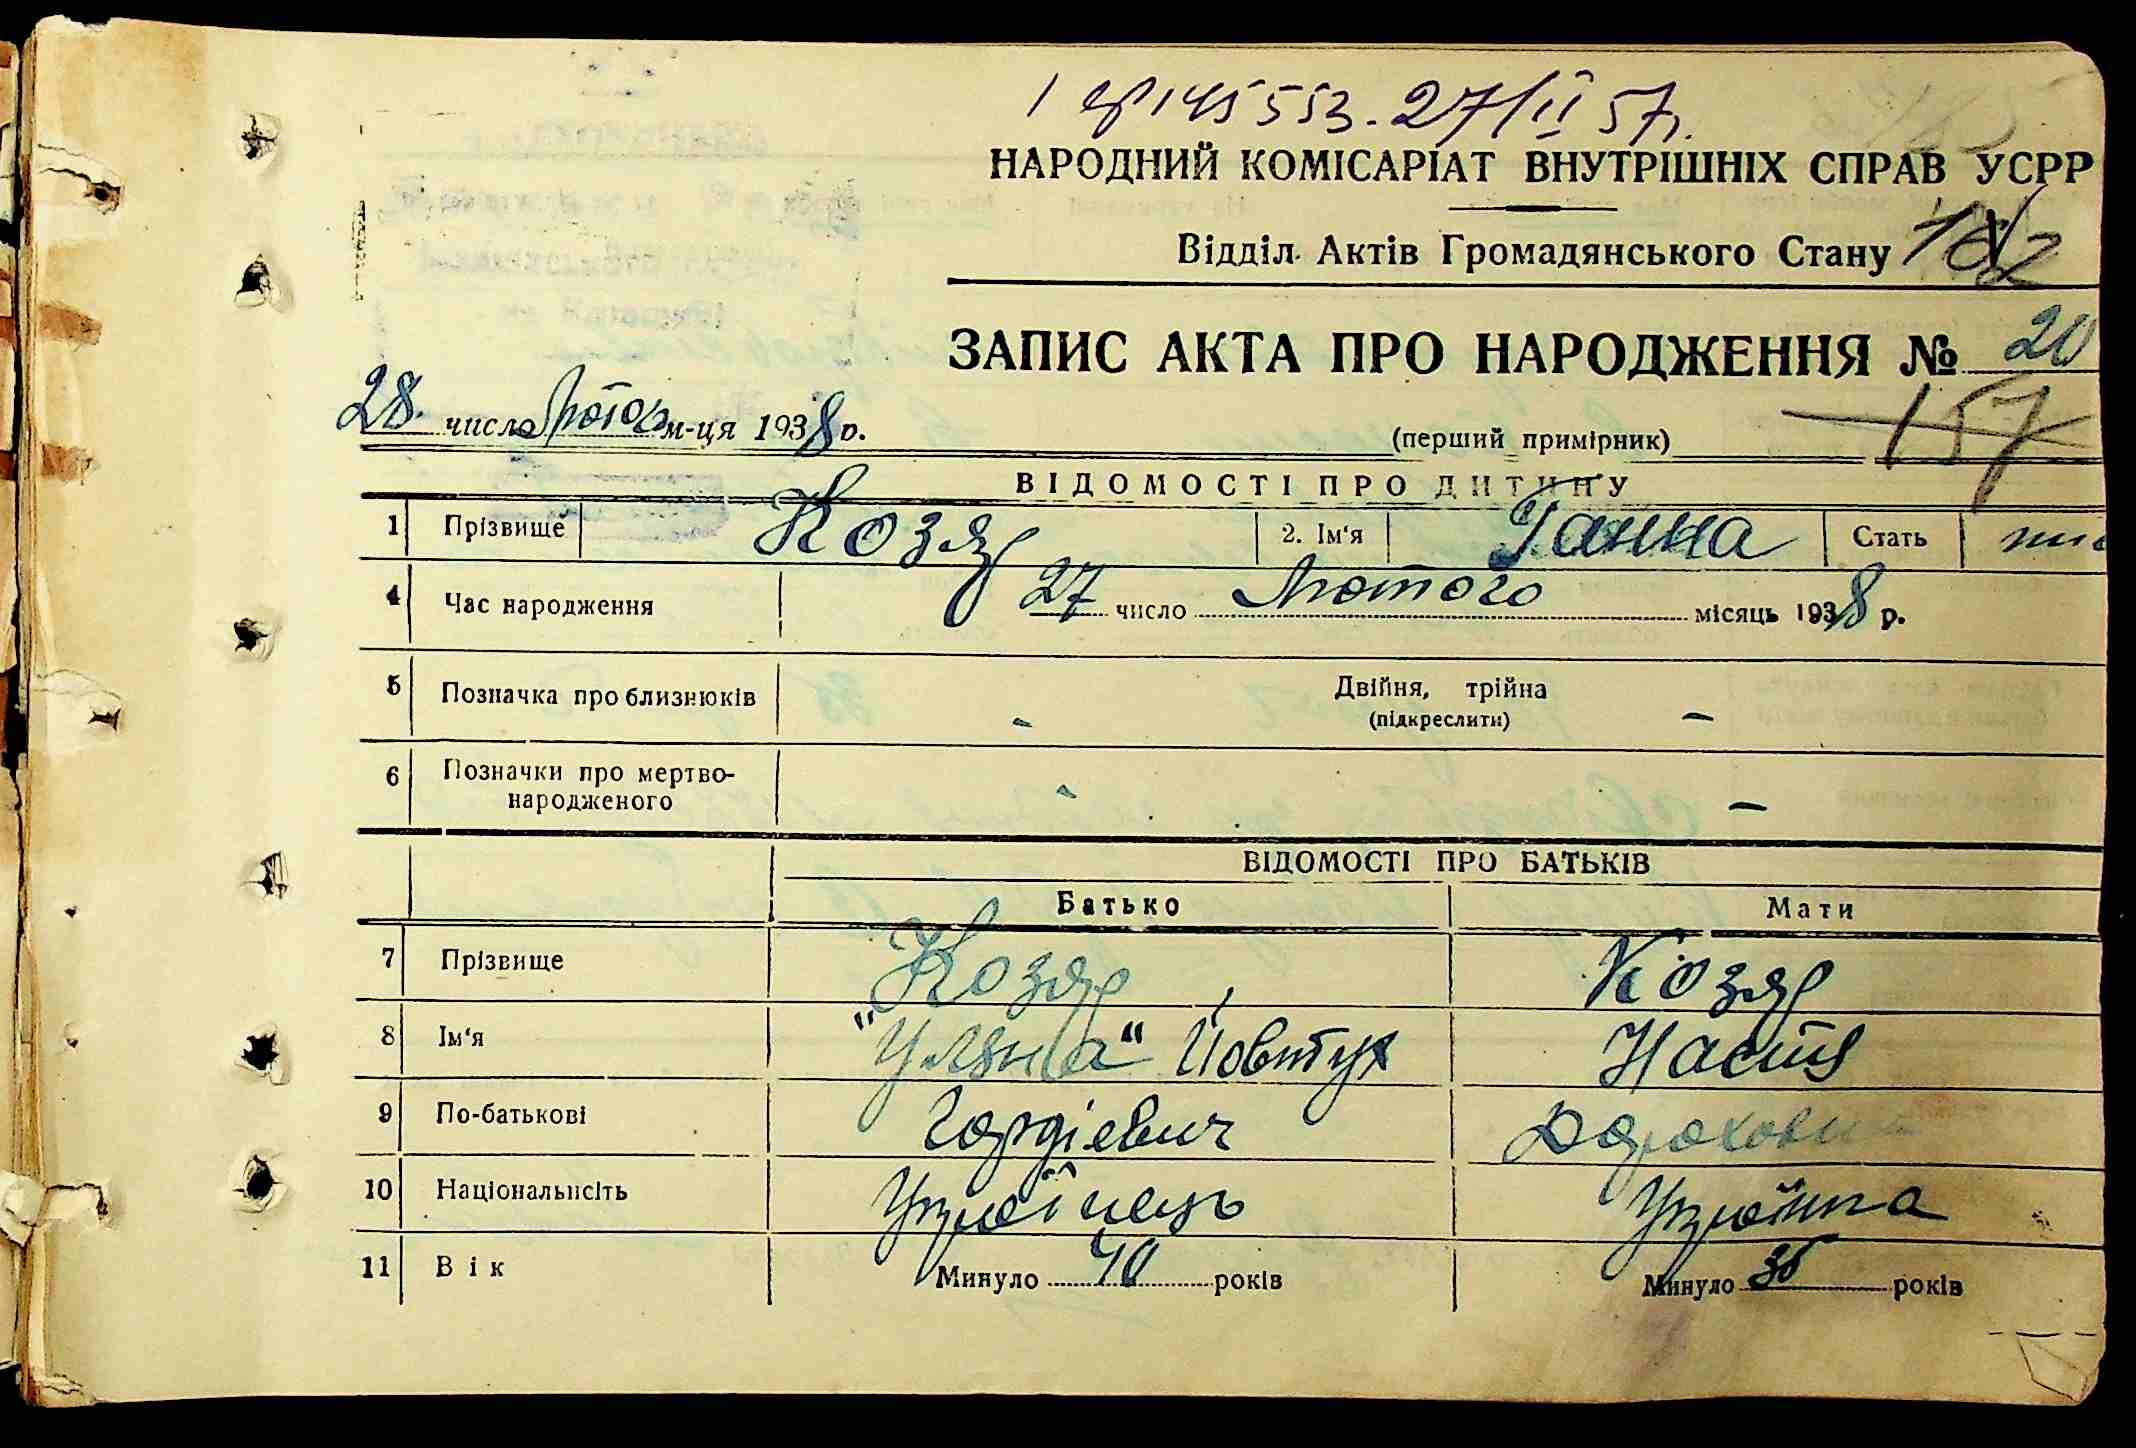 145553. 27/II 57р.
НАРОДНИЙ КОМІСАРІАТ ВНУТРІШНІХ СПРАВ УСРР
Відділ Актів Громадянського Стану 162
ЗАПИС АКТА ПРО НАРОДЖЕННЯ № 20
28 число Лютого м-ця 1938 р.
(перший примірник) 157
ВІДОМОСТІ ПРО ДИТИНУ
1 Прізвище Козяр 2. Ім'я Ганна Стать
4 Час народження 27 число Лютого місяць 1938 р.
5 Позначка про близнюків - Двійня, трійна -
(підкреслити)
6 Позначки про мертво-
народженого - -
ВІДОМОСТІ ПРО БАТЬКІВ
Батько Мати
7 Прізвище Козяр Козяр
8 Ім'я "Уляна" Йовтух Настя
9 По-батькові Гордієвич
10 Національність Українець Українка
11 Вік Минуло 40 років Минуло 36 років